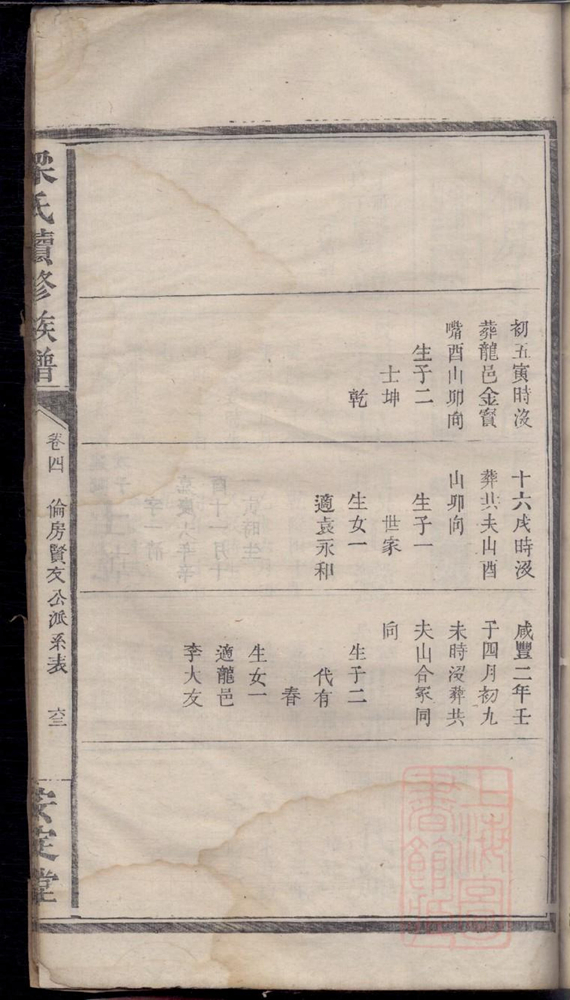 初五寅時沒
葬龍邑金賓
嘴酉山卯向
生子二
士坤
乾
十六戌時沒
葬共夫山酉
山卯向
生子一
世家
生女一
適袁永和
咸豐二年壬
子四月初九
未時沒葬共
夫山合冢同
向
生子二
代有
春
生女一
適龍邑
李大友
梁氏續修族譜
卷四
倫房賢友公派系表
六三
安定堂
上海圖書館藏